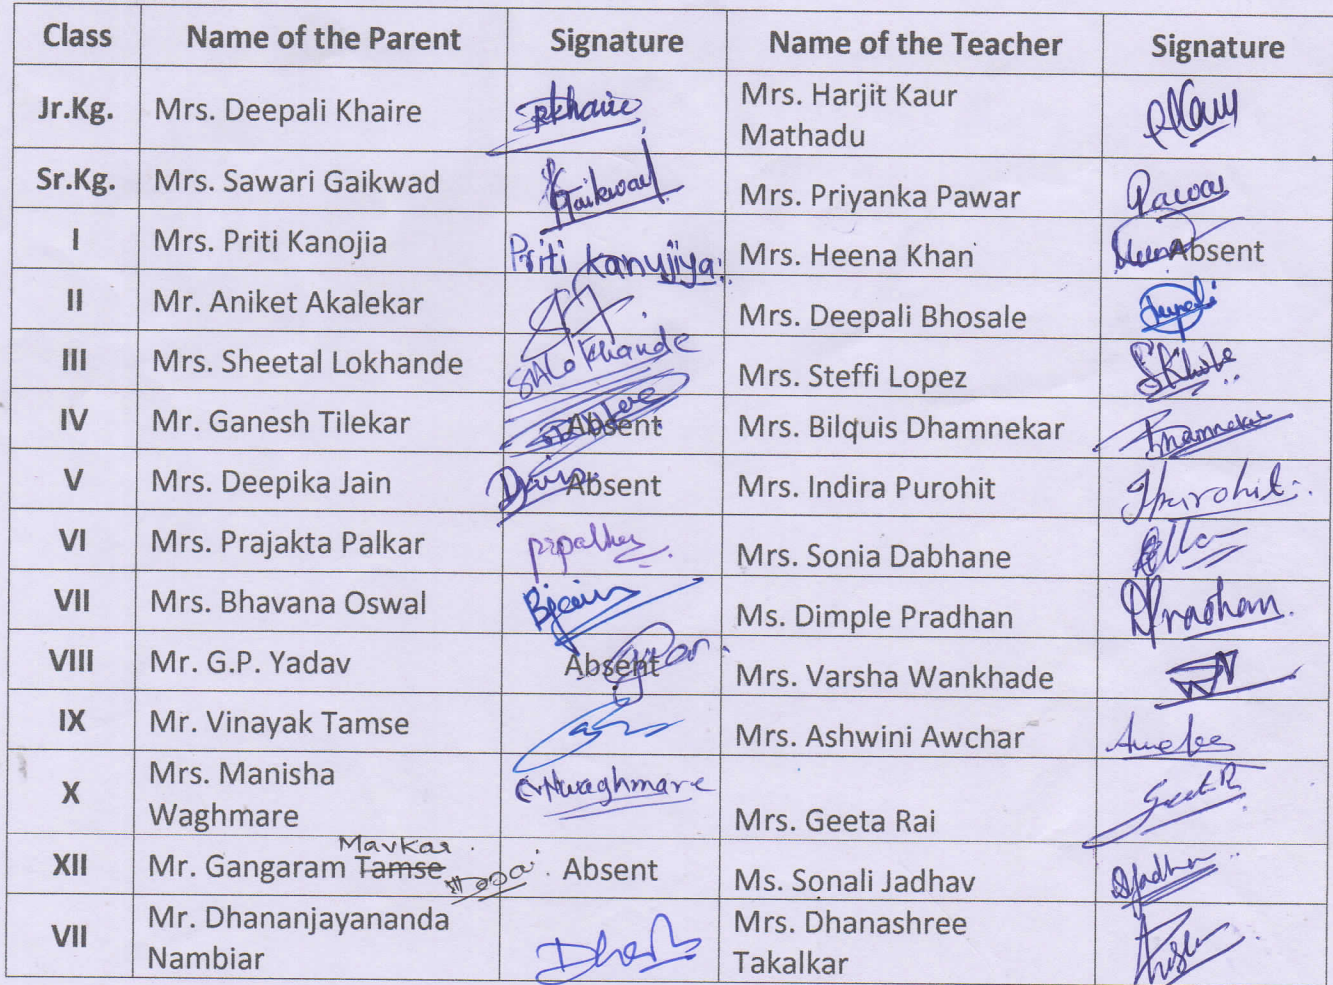 Class Name of the Parent Signature Name of the Teacher Signature
Jr.Kg. Mrs. Deepali Khaire Mrs. Harjit Kaur
Mathadu
Sr.Kg. Mrs. Sawari Gaikwad Gaikwad Mrs. Priyanka Pawar Pawar
I Mrs. Priti Kanojia Priti Kanujiya Mrs. Heena Khan Heena Absent
II Mr. Aniket Akalekar Mrs. Deepali Bhosale
III Mrs. Sheetal Lokhande SALokhande Mrs. Steffi Lopez
IV Mr. Ganesh Tilekar Absent Mrs. Bilquis Dhamnekar
V Mrs. Deepika Jain DJain Absent Mrs. Indira Purohit IPurohit
VI Mrs. Prajakta Palkar Mrs. Sonia Dabhane
VII Mrs. Bhavana Oswal BJain Ms. Dimple Pradhan DPradhan
VIII Mr. G.P. Yadav Absent Mrs. Varsha Wankhade
IX Mr. Vinayak Tamse Mrs. Ashwini Awchar
X Mrs. Manisha
Waghmare Mrs. Geeta Rai
Mavkar
XII Mr. Gangaram Tamse Absent Ms. Sonali Jadhav
VII Mr. Dhananjayananda Mrs. Dhanashree
Nambiar Takalkar